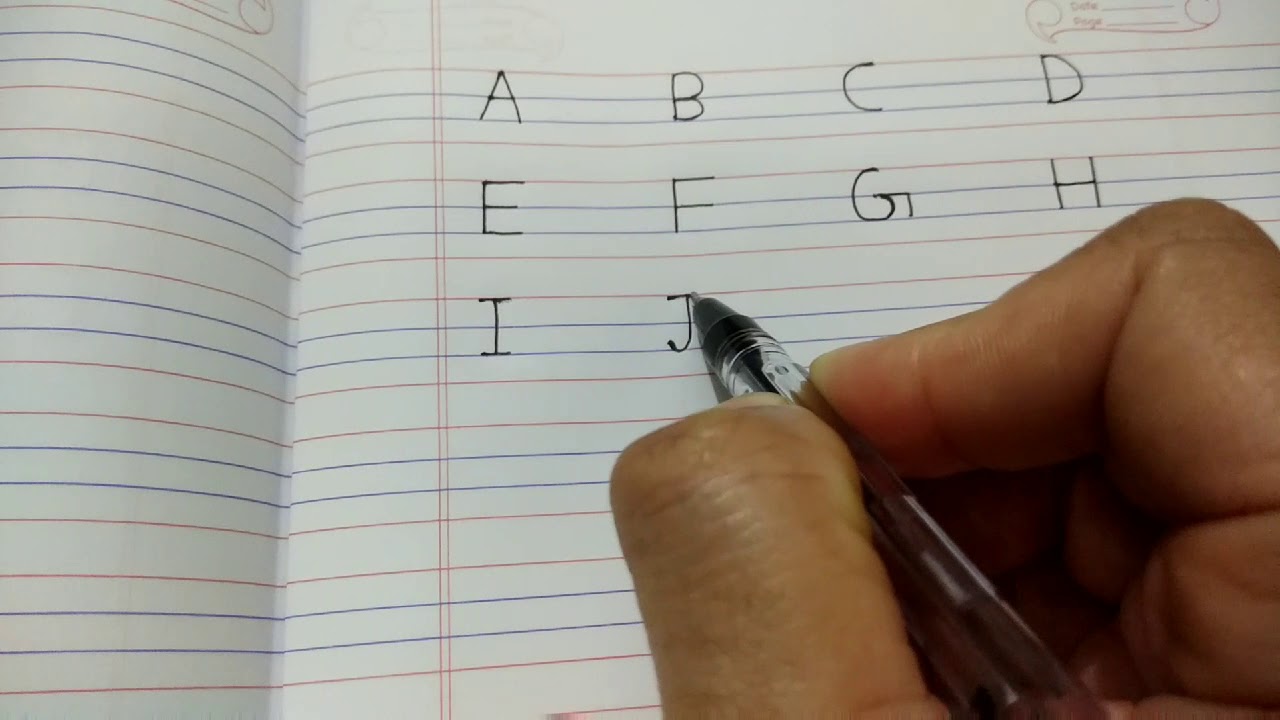 Date
Page
A B C D
E F G H
I J